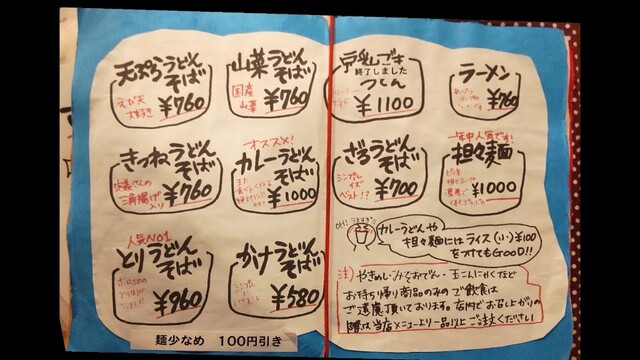 天ぷらうどん
そば
えび天
大好き
¥760
山菜うどん
そば
国産
山菜
¥760
豆乳ごま
終了しました
うどん
¥1100
ラーメン
¥760
きつねうどん
そば
定義さんの
三角揚げ
入り
¥760
オススメ!
カレーうどん
そば
¥1000
ざるうどん
そば
シンプル
イズ
ベスト!?
¥700
年中人気です!
担々麺
¥1000
人気NO1
とりうどん
そば
¥960
かけうどん
そば
シンプル
¥580
OH!
カレーうどんや
担々麺にはライス(小)¥100
をつけてもGOOD!!
注) やきめし・みそおでん・玉こんにゃくなど
お持ち帰り商品のみので飲食は
ご遠慮頂いております。店内でお召し上がりの
際は当店メニューより一品以上ご注文ください
麺少なめ 100円引き